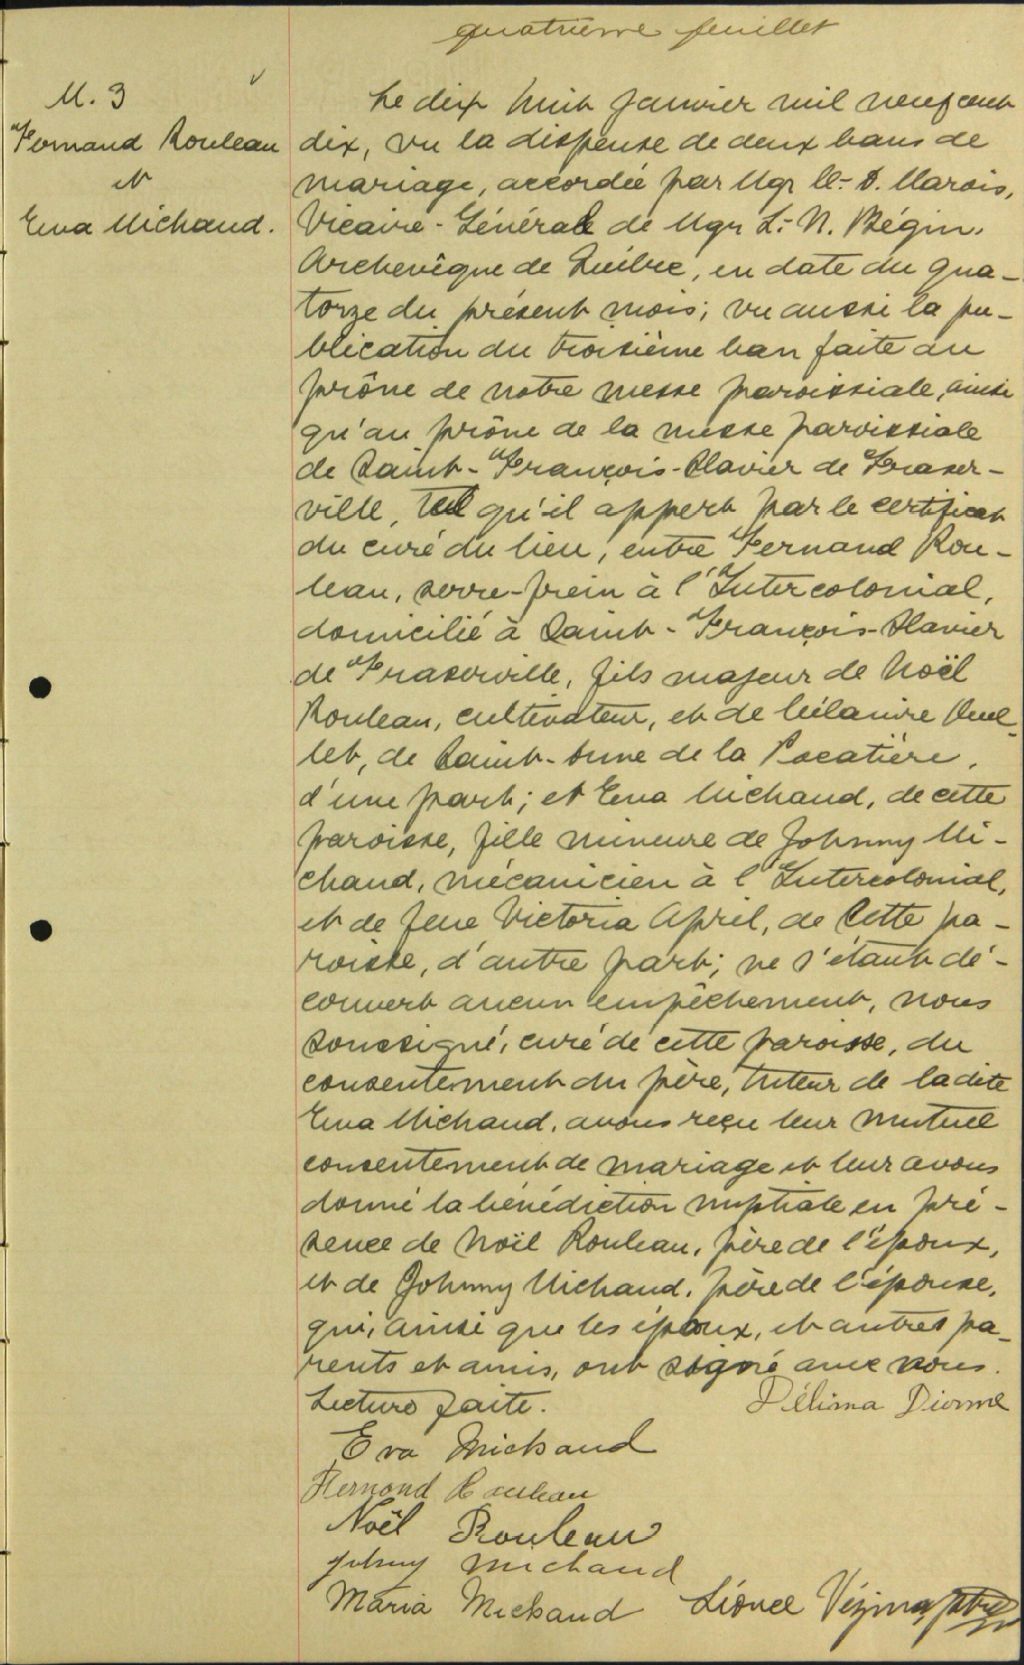 quatrième feuillet
M. 3
Fernand Rouleau
et
Eva Michaud.
Le dix huit Janvier mil neuf cent
dix, vu la dispense de deux bans de
mariage, accordée par Mgr C.-A. Marois,
Vicaire-Général de Mgr L.-N. Bégin,
Archevêque de Québec, en date du qua-
torze du présent mois; vu aussi la pu-
blication du troisième ban faite au
prône de notre messe paroissiale, ainsi
qu'au prône de la messe paroissiale
de Saint-François-Xavier de Fraser-
ville, tel qu'il appert par le certificat
du curé du lieu, entre Fernand Rou-
leau, serre-frein à l'Intercolonial,
domicilié à Saint-François-Xavier
de Fraserville, fils majeur de Noël
Rouleau, cultivateur, et de Célanire Ouel-
let, de Sainte-Anne de la Pocatière,
d'une part; et Eva Michaud, de cette
paroisse, fille mineure de Johnny Mi-
chaud, mécanicien à l'Intercolonial,
et de feue Victoria April, de cette pa-
roisse, d'autre part; ne s'étant dé-
couvert aucun empêchement, nous
soussigné, curé de cette paroisse, du
consentement du père, tuteur de ladite
Eva Michaud, avons reçu leur mutuel
consentement de mariage et leur avons
donné la bénédiction nuptiale en pré-
sence de Noël Rouleau, père de l'époux,
et de Johnny Michaud, père de l'épouse,
qui, ainsi que les époux, et autres pa-
rents et amis, ont signé avec nous.
Lecture faite.
Délima Dionne
Eva Michaud
Fernand Rouleau
Noël Rouleau
Johny Michaud
Maria Michaud
Lionel Vézina, ptre